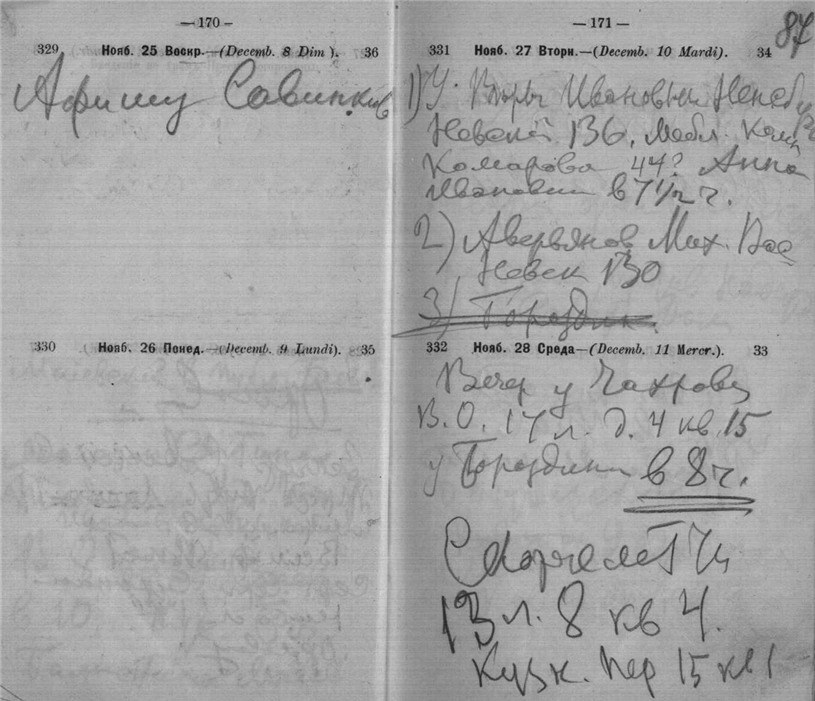 — 170 —
329 Нояб. 25 Воскр.—(Decemb. 8 Dim). 36
Афишу Савинков
330 Нояб. 26 Понед.—(Decemb. 9 Lundi). 35
— 171 — 87
331 Нояб. 27 Вторн.—(Decemb. 10 Mardi). 34
1) У Веры Ивановны
Невский 136, Мебл. Комн
Комарова 44? Анна
Ивановна в 7 1/2 ч.
2) Аверьянов Мих. Вас
Невск 130
3) Бороздин.
332 Нояб. 28 Среда—(Decemb. 11 Mercr.). 33
Вечер у
В. О. 17 л. д. 4 кв. 15
у Бороздина в 8 ч.
13 л. 8 кв 4.
Кузн. пер 15 кв 1